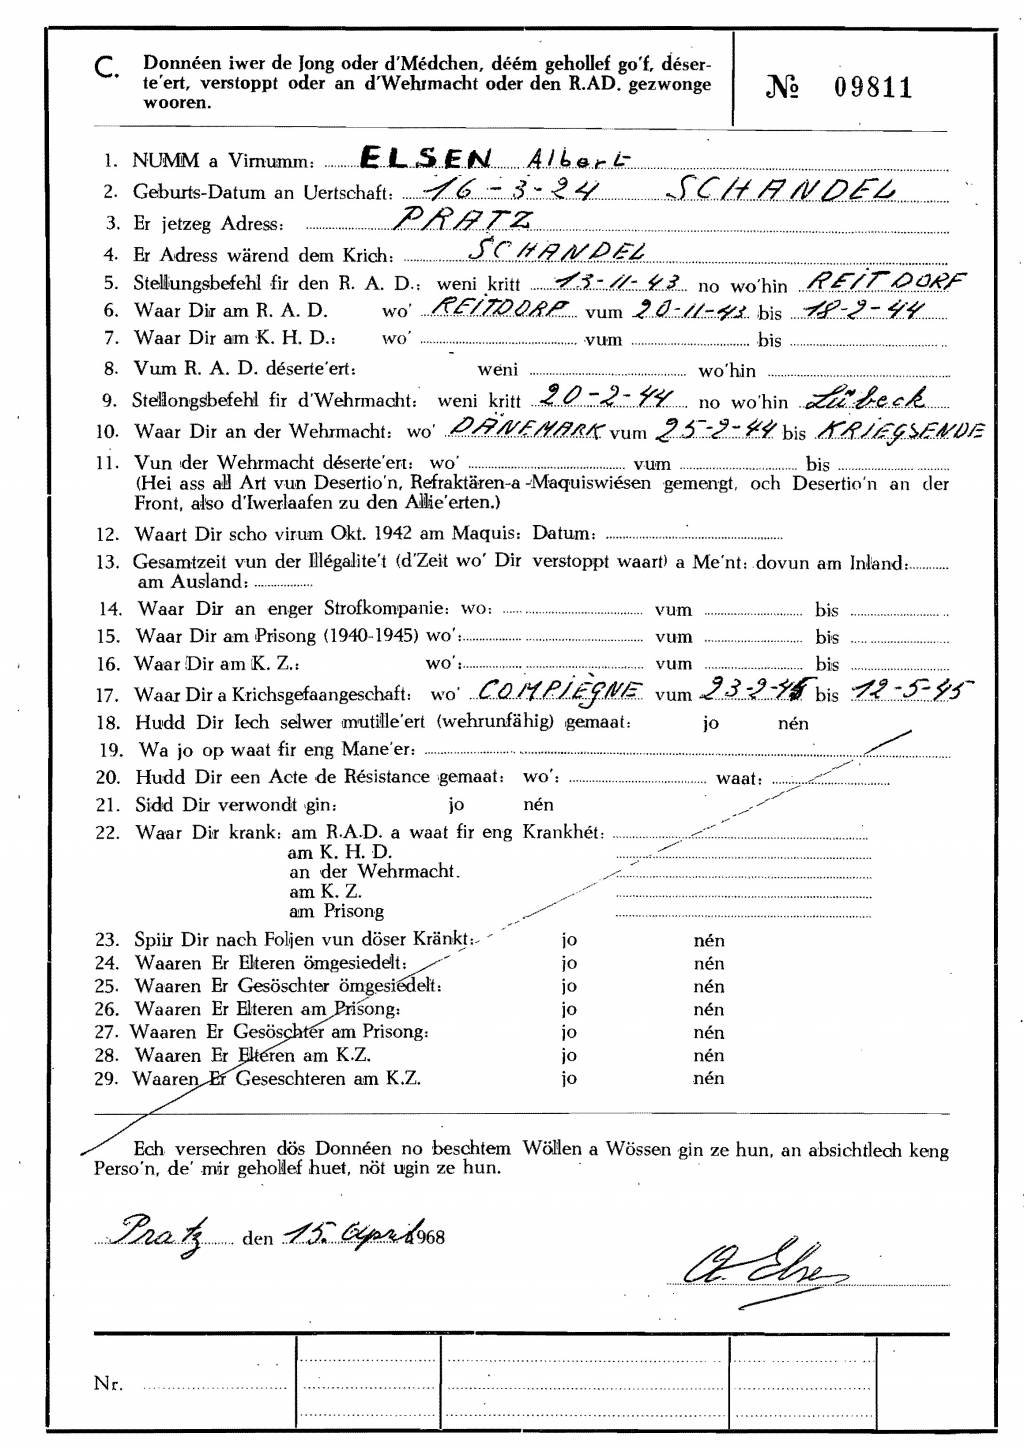 C. Donnéen iwer de Jong oder d'Médchen, déém gehollef go'f, déser-
te'ert, verstoppt oder an d'Wehrmacht oder den R.AD. gezwonge
wooren.
№ 09811
1. NUMM a Virnumm: ELSEN Albert
2. Geburts-Datum an Uertschaft: 16-3-24 SCHANDEL
3. Er jetzeg Adress: PRATZ
4. Er Adress wärend dem Krich: SCHANDEL
5. Stellungsbefehl fir den R. A. D.: weni kritt 13-11-43 no wo'hin REITDORF
6. Waar Dir am R. A. D. wo' REITDORF vum 20-11-43 bis 18-2-44
7. Waar Dir am K. H. D.: wo' vum bis
8. Vum R. A. D. déserte'ert: weni wo'hin
9. Stellongsbefehl fir d'Wehrmacht: weni kritt 20-2-44 no wo'hin Lübeck
10. Waar Dir an der Wehrmacht: wo' DÄNEMARK vum 25-2-44 bis KRIEGSENDE
11. Vun der Wehrmacht déserte'ert: wo' vum bis
(Hei ass all Art vun Desertio'n, Refraktären-a-Maquiswiésen gemengt, och Desertio'n an der
Front, also d'Iwerlaafen zu den Allie'erten.)
12. Waart Dir scho virum Okt. 1942 am Maquis: Datum:
13. Gesamtzeit vun der Illégalite't (d'Zeit wo' Dir verstoppt waart) a Me'nt: dovun am Inland:
am Ausland:
14. Waar Dir an enger Strofkompanie: wo: vum bis
15. Waar Dir am Prisong (1940-1945) wo': vum bis
16. Waar Dir am K. Z.: wo': vum bis
17. Waar Dir a Krichsgefaangeschaft: wo' COMPIÈGNE vum 23-2-45 bis 12-5-45
18. Hudd Dir Iech selwer mutille'ert (wehrunfähig) gemaat: jo nén
19. Wa jo op waat fir eng Mane'er:
20. Hudd Dir een Acte de Résistance gemaat: wo': waat:
21. Sidd Dir verwondt gin: jo nén
22. Waar Dir krank: am R.A.D. a waat fir eng Krankhét:
am K. H. D.
an der Wehrmacht.
am K. Z.
am Prisong
23. Spiir Dir nach Foljen vun döser Kränkt: jo nén
24. Waaren Er Elteren ömgesiedelt: jo nén
25. Waaren Er Gesöschter ömgesiedelt: jo nén
26. Waaren Er Elteren am Prisong: jo nén
27. Waaren Er Gesöschter am Prisong: jo nén
28. Waaren Er Elteren am K.Z. jo nén
29. Waaren Er Geseschteren am K.Z. jo nén
Ech versechren dös Donnéen no beschtem Wöllen a Wössen gin ze hun, an absichtlech keng
Perso'n, de' mir gehollef huet, nöt ugin ze hun.
Pratz den 15. April 1968
A. Elsen
Nr.